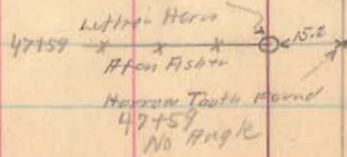 Luther Horn
47+59 x x x 15.2
Aton Fisher
Harrow Tooth Found
47+59
No Angle